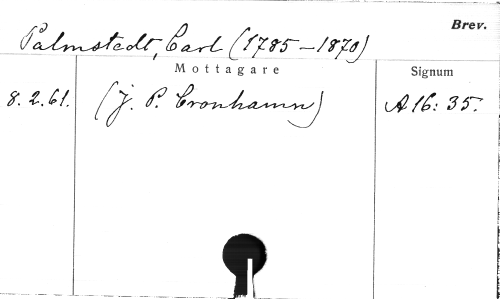 Brev.
Palmstedt, Carl (1785–1870)
Mottagare Signum
8.2.61. (J. P. Cronhamn) A16: 35.